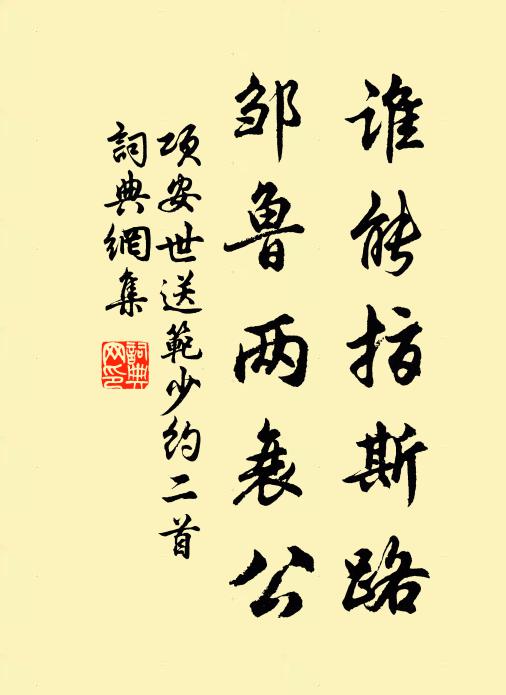 谁能指斯路
邹鲁两衰公
項安世送範少约二首
詞典網集
詞典网印